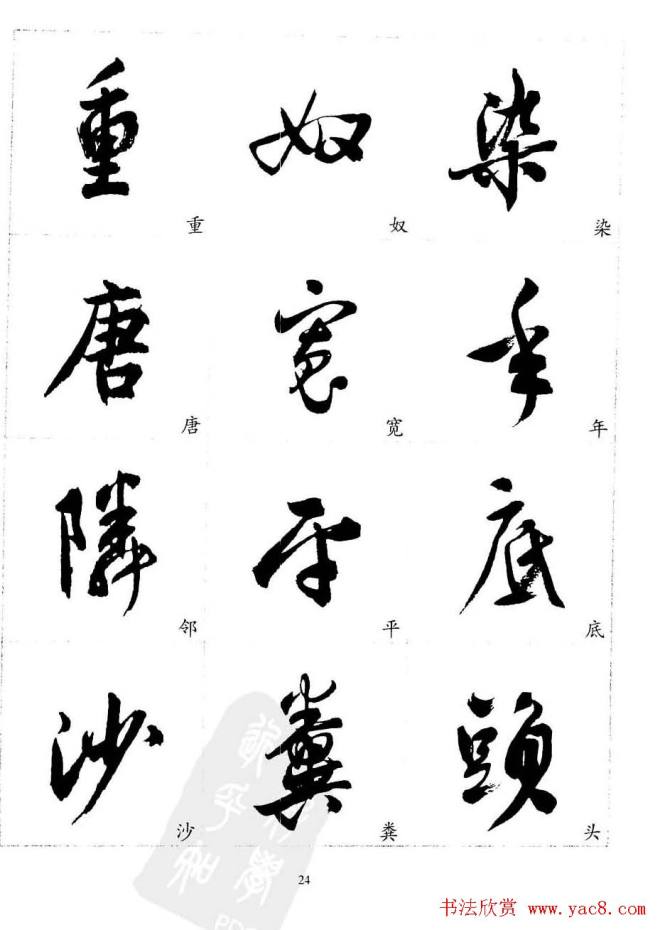 重 奴 染
重 奴 染
唐 寬 年
唐 宽 年
隣 平 底
邻 平 底
沙 糞 頭
沙 粪 头
24
书法欣赏 www.yac8.com